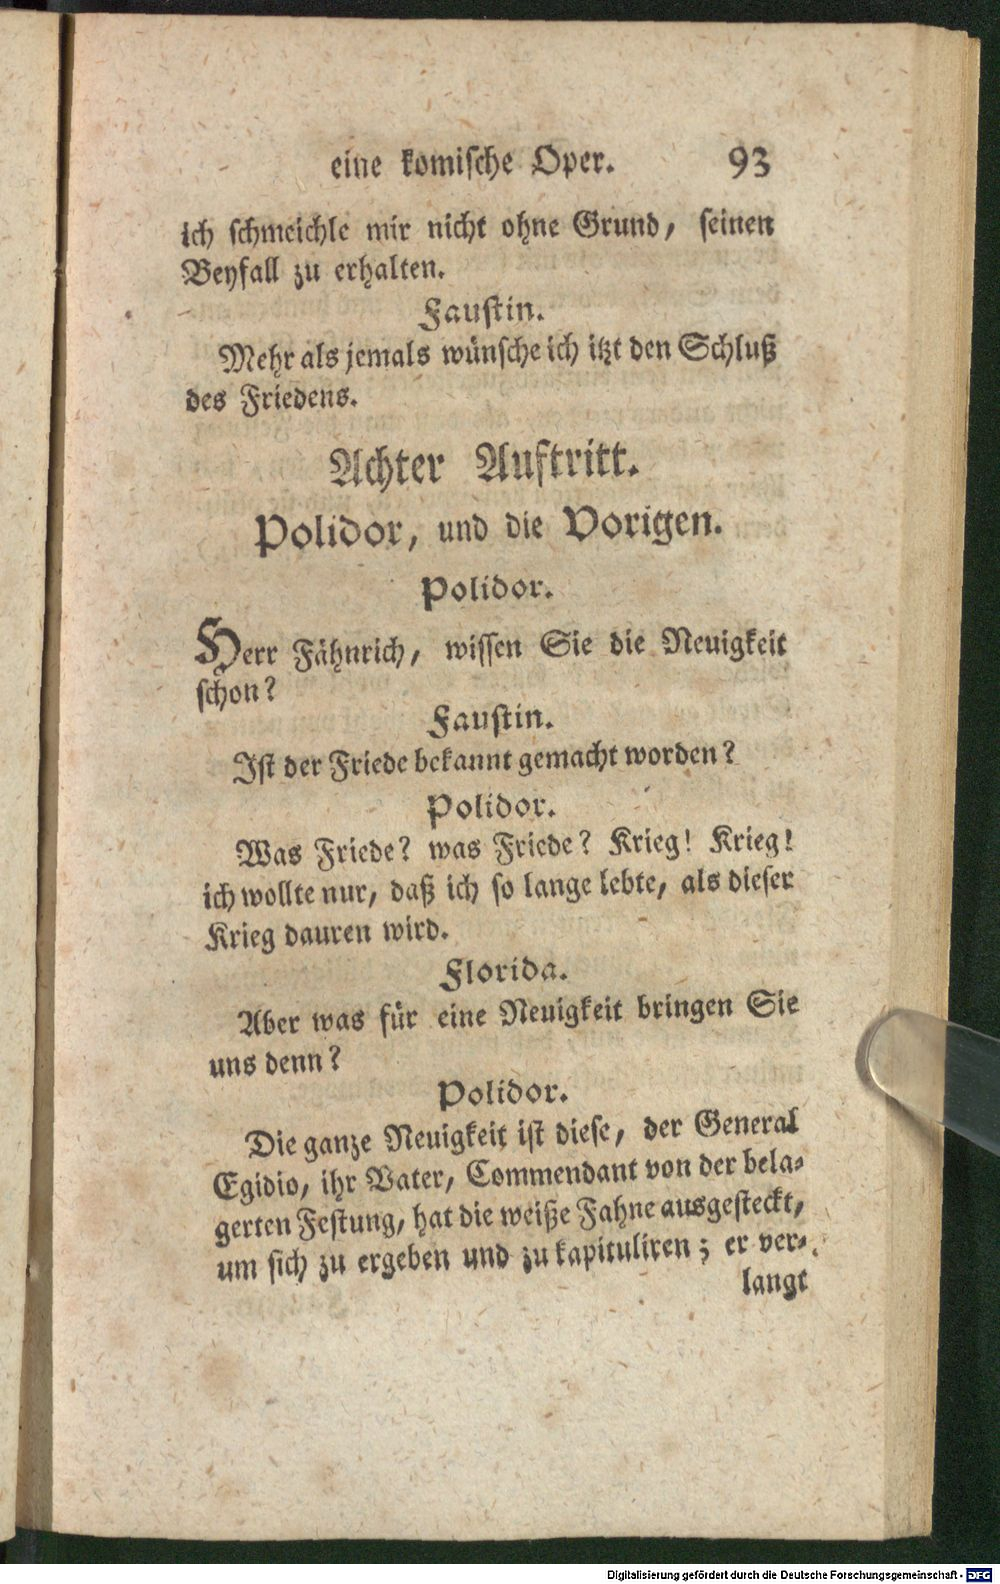 eine komische Oper. 93
ich schmeichle mir nicht ohne Grund, seinen
Beyfall zu erhalten.
Faustin.
Mehr als jemals wünsche ich itzt den Schluß
des Friedens.
Achter Auftritt.
Polidor, und die Vorigen.
Polidor.
Herr Fähnrich, wissen Sie die Neuigkeit
schon?
Faustin.
Ist der Friede bekannt gemacht worden?
Polidor.
Was Friede? was Friede? Krieg! Krieg!
ich wollte nur, daß ich so lange lebte, als dieser
Krieg dauren wird.
Florida.
Aber was für eine Neuigkeit bringen Sie
uns denn?
Polidor.
Die ganze Neuigkeit ist diese, der General
Egidio, ihr Vater, Commendant von der bela-
gerten Festung, hat die weiße Fahne ausgesteckt,
um sich zu ergeben und zu kapituliren; er ver-
langt
Digitalisierung gefördert durch die Deutsche Forschungsgemeinschaft - DFG